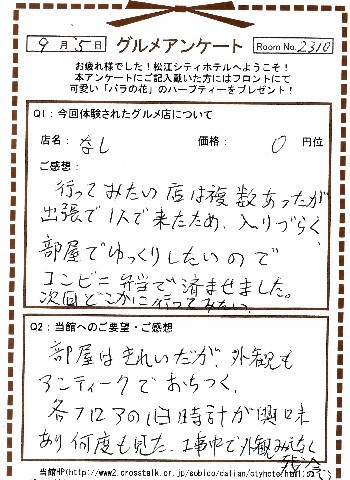 9月5日 グルメアンケート Room No.2310
お疲れ様でした！松江シティホテルへようこそ！
本アンケートにご記入戴いた方にはフロントにて
可愛い「バラの花」のハーブティーをプレゼント！
Q1：今回体験されたグルメ店について
店名：なし 価格： 0 円位
ご感想：
行ってみたい店は複数あったが
出張で1人で来たため、入りづらく
部屋でゆっくりしたいので
コンビニ弁当で済ませました。
次回どこかに行ってみたい。
Q2：当館へのご要望・ご感想
部屋はきれいだが、外観も
アンティークでおちつく。
各フロアの旧時計が興味
あり何度も見た。工事中で外観みえなく
残念
当館HP(http://www2.crosstalk.or.jp/sobico/dalian/ctyhote/hall.